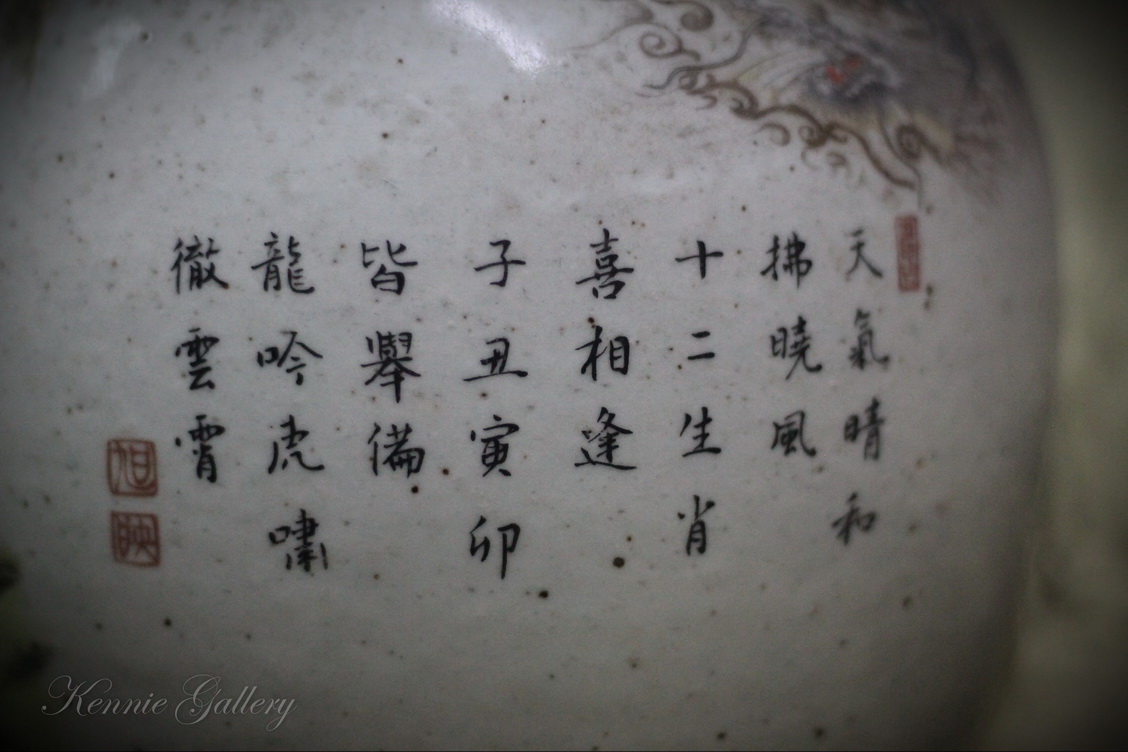 天氣晴和
拂曉風
十二生肖
喜相逢
子丑寅卯
皆舉備
龍吟虎嘯
徹雲霄
旭
映
Kennie Gallery